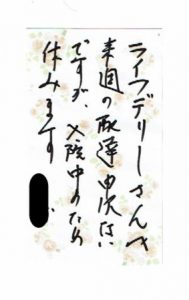 ライフデリーさんへ
来週の配達申次ない
ですが、入院中のため
休みます